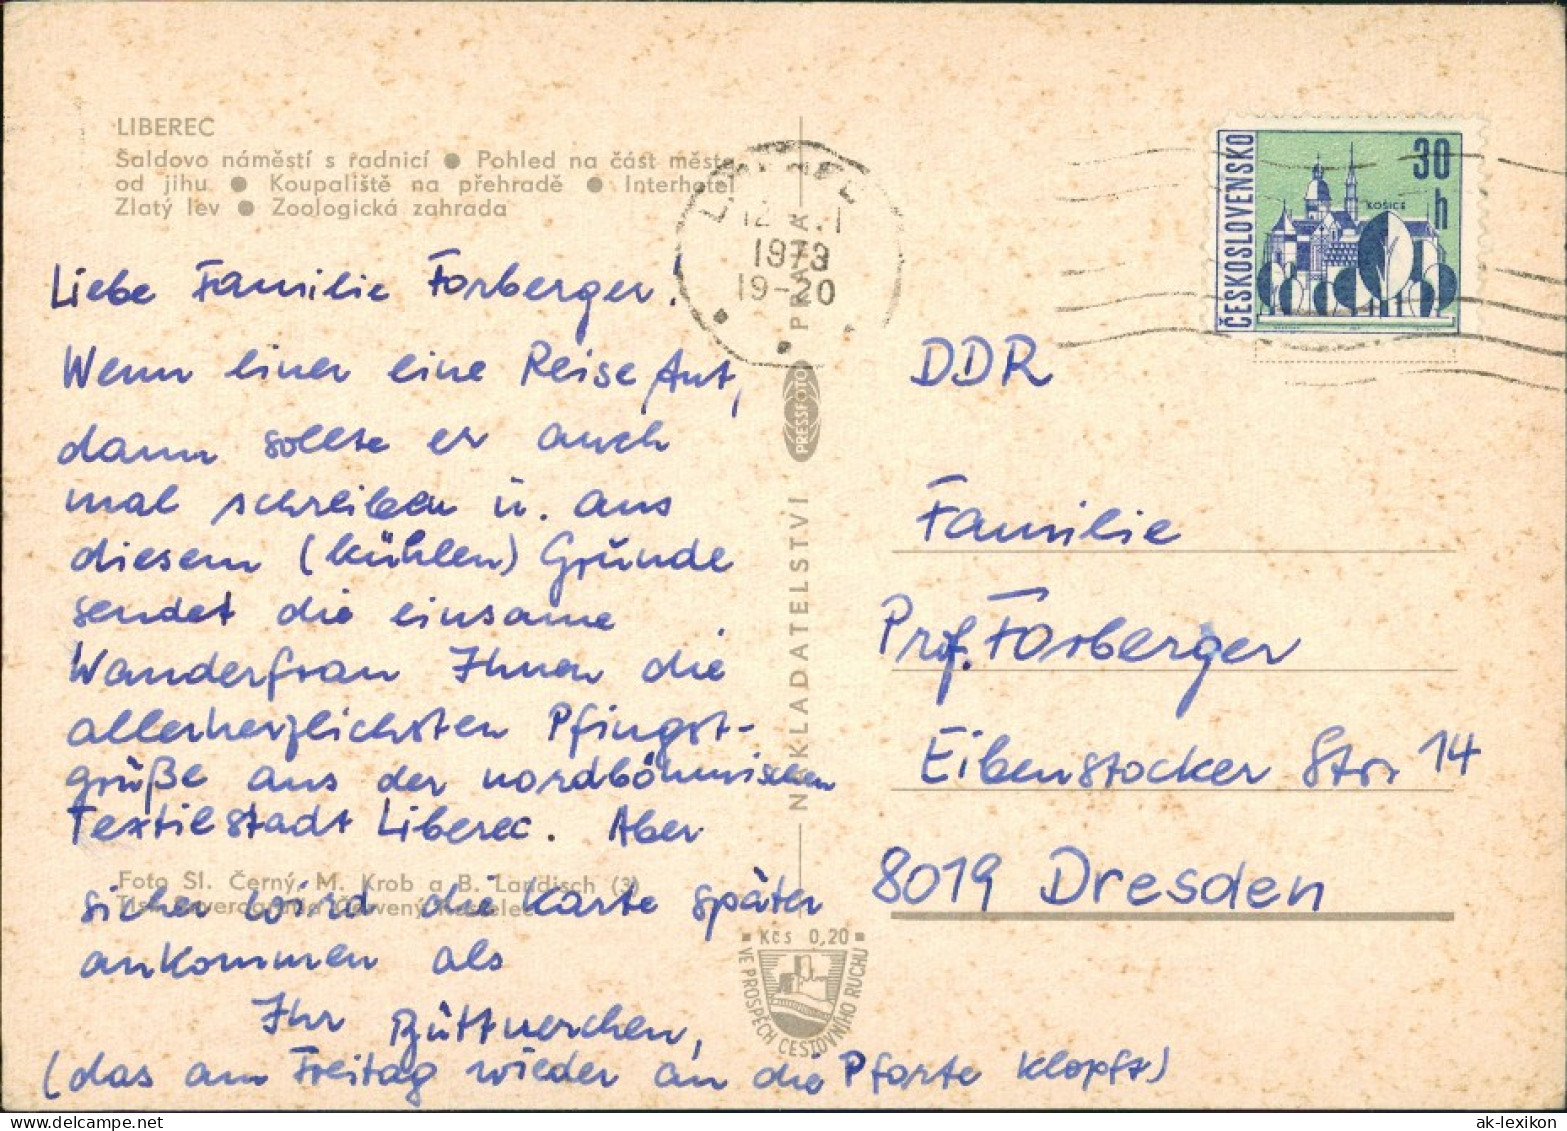 LIBEREC
Šaldovo náměstí s radnicí ● Pohled na část města
od jihu ● Koupaliště na přehradě ● Interhotel
Zlatý lev ● Zoologická zahrada
Liebe Familie Forberger!
Wenn einer eine Reise tut,
dann sollte er auch
mal schreiben u. aus
diesem (kühlen) Grunde
sendet die einsame
Wanderfrau Ihnen die
allerherzlichsten Pfingst-
grüße aus der nordböhmischen
Textilstadt Liberec. Aber
Foto Sl. Černý, M. Krob a B. Landisch (3)
sicher wird die Karte später
ankommen als
Ihr Büttnerchen,
(das am Freitag wieder an die Pforte klopft)
1973
19-20
NAKLADATELSTVÍ
PRESSFOTO
PRAHA
Kčs 0,20
VE PROSPĚCH CESTOVNÍHO RUCHU
ČESKOSLOVENSKO
30
h
KOŠICE
DDR
Familie
Prof. Forberger
Eibenstocker Str. 14
8019 Dresden
ak-lexikon